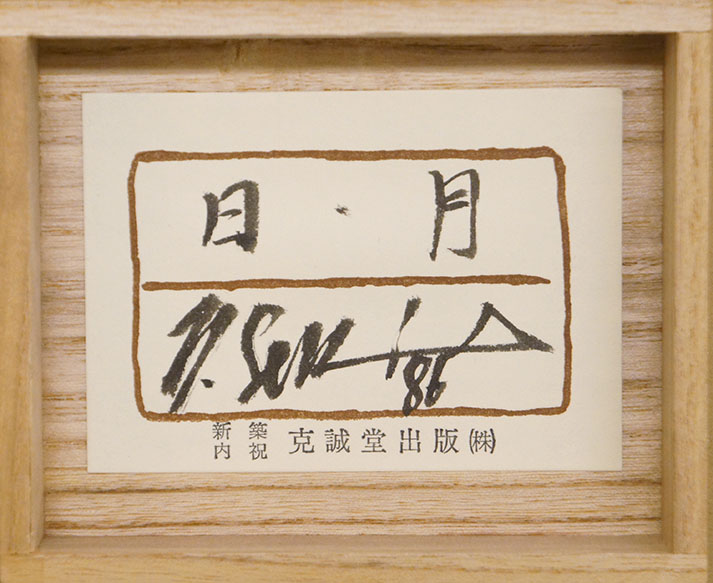 日・月
N. Seki '86
新築
内祝
克誠堂出版㈱